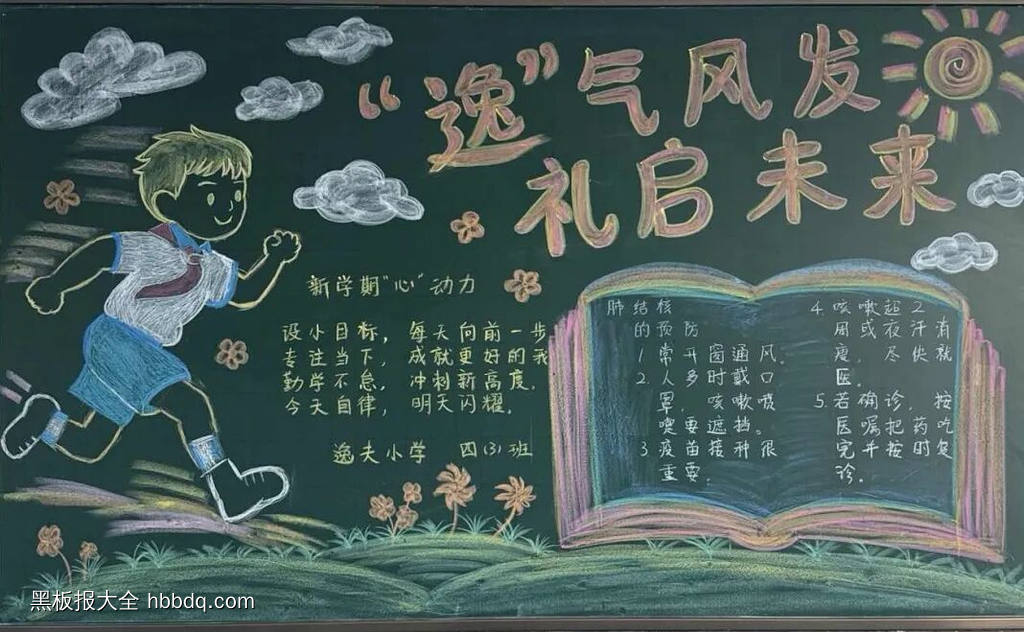 “逸”气风发
礼启未来
新学期“心”动力
设小目标，每天向前一步
专注当下，成就更好的我
勤学不怠，冲刺新高度，
今天自律，明天闪耀。
逸夫小学 四(3)班
肺结核
的预防
1 常开窗通风。
2.人多时戴口
罩，咳嗽喷
嚏要遮挡。
3 疫苗接种很
重要.
4.咳嗽超2
周或夜汗消
瘦，尽快就
医。
5.若确诊，按
医嘱把药吃
完并按时复
诊。
黑板报大全 hbbdq.com